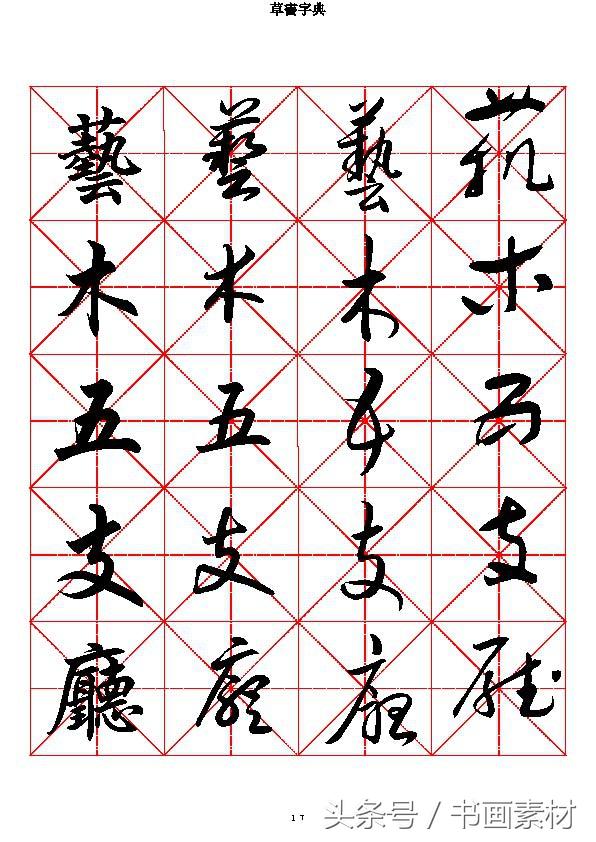 草書字典
藝 藝 藝 藝
木 木 木 木
五 五 五 五
支 支 支 支
廳 廳 廳 廳
17
头条号 / 书画素材